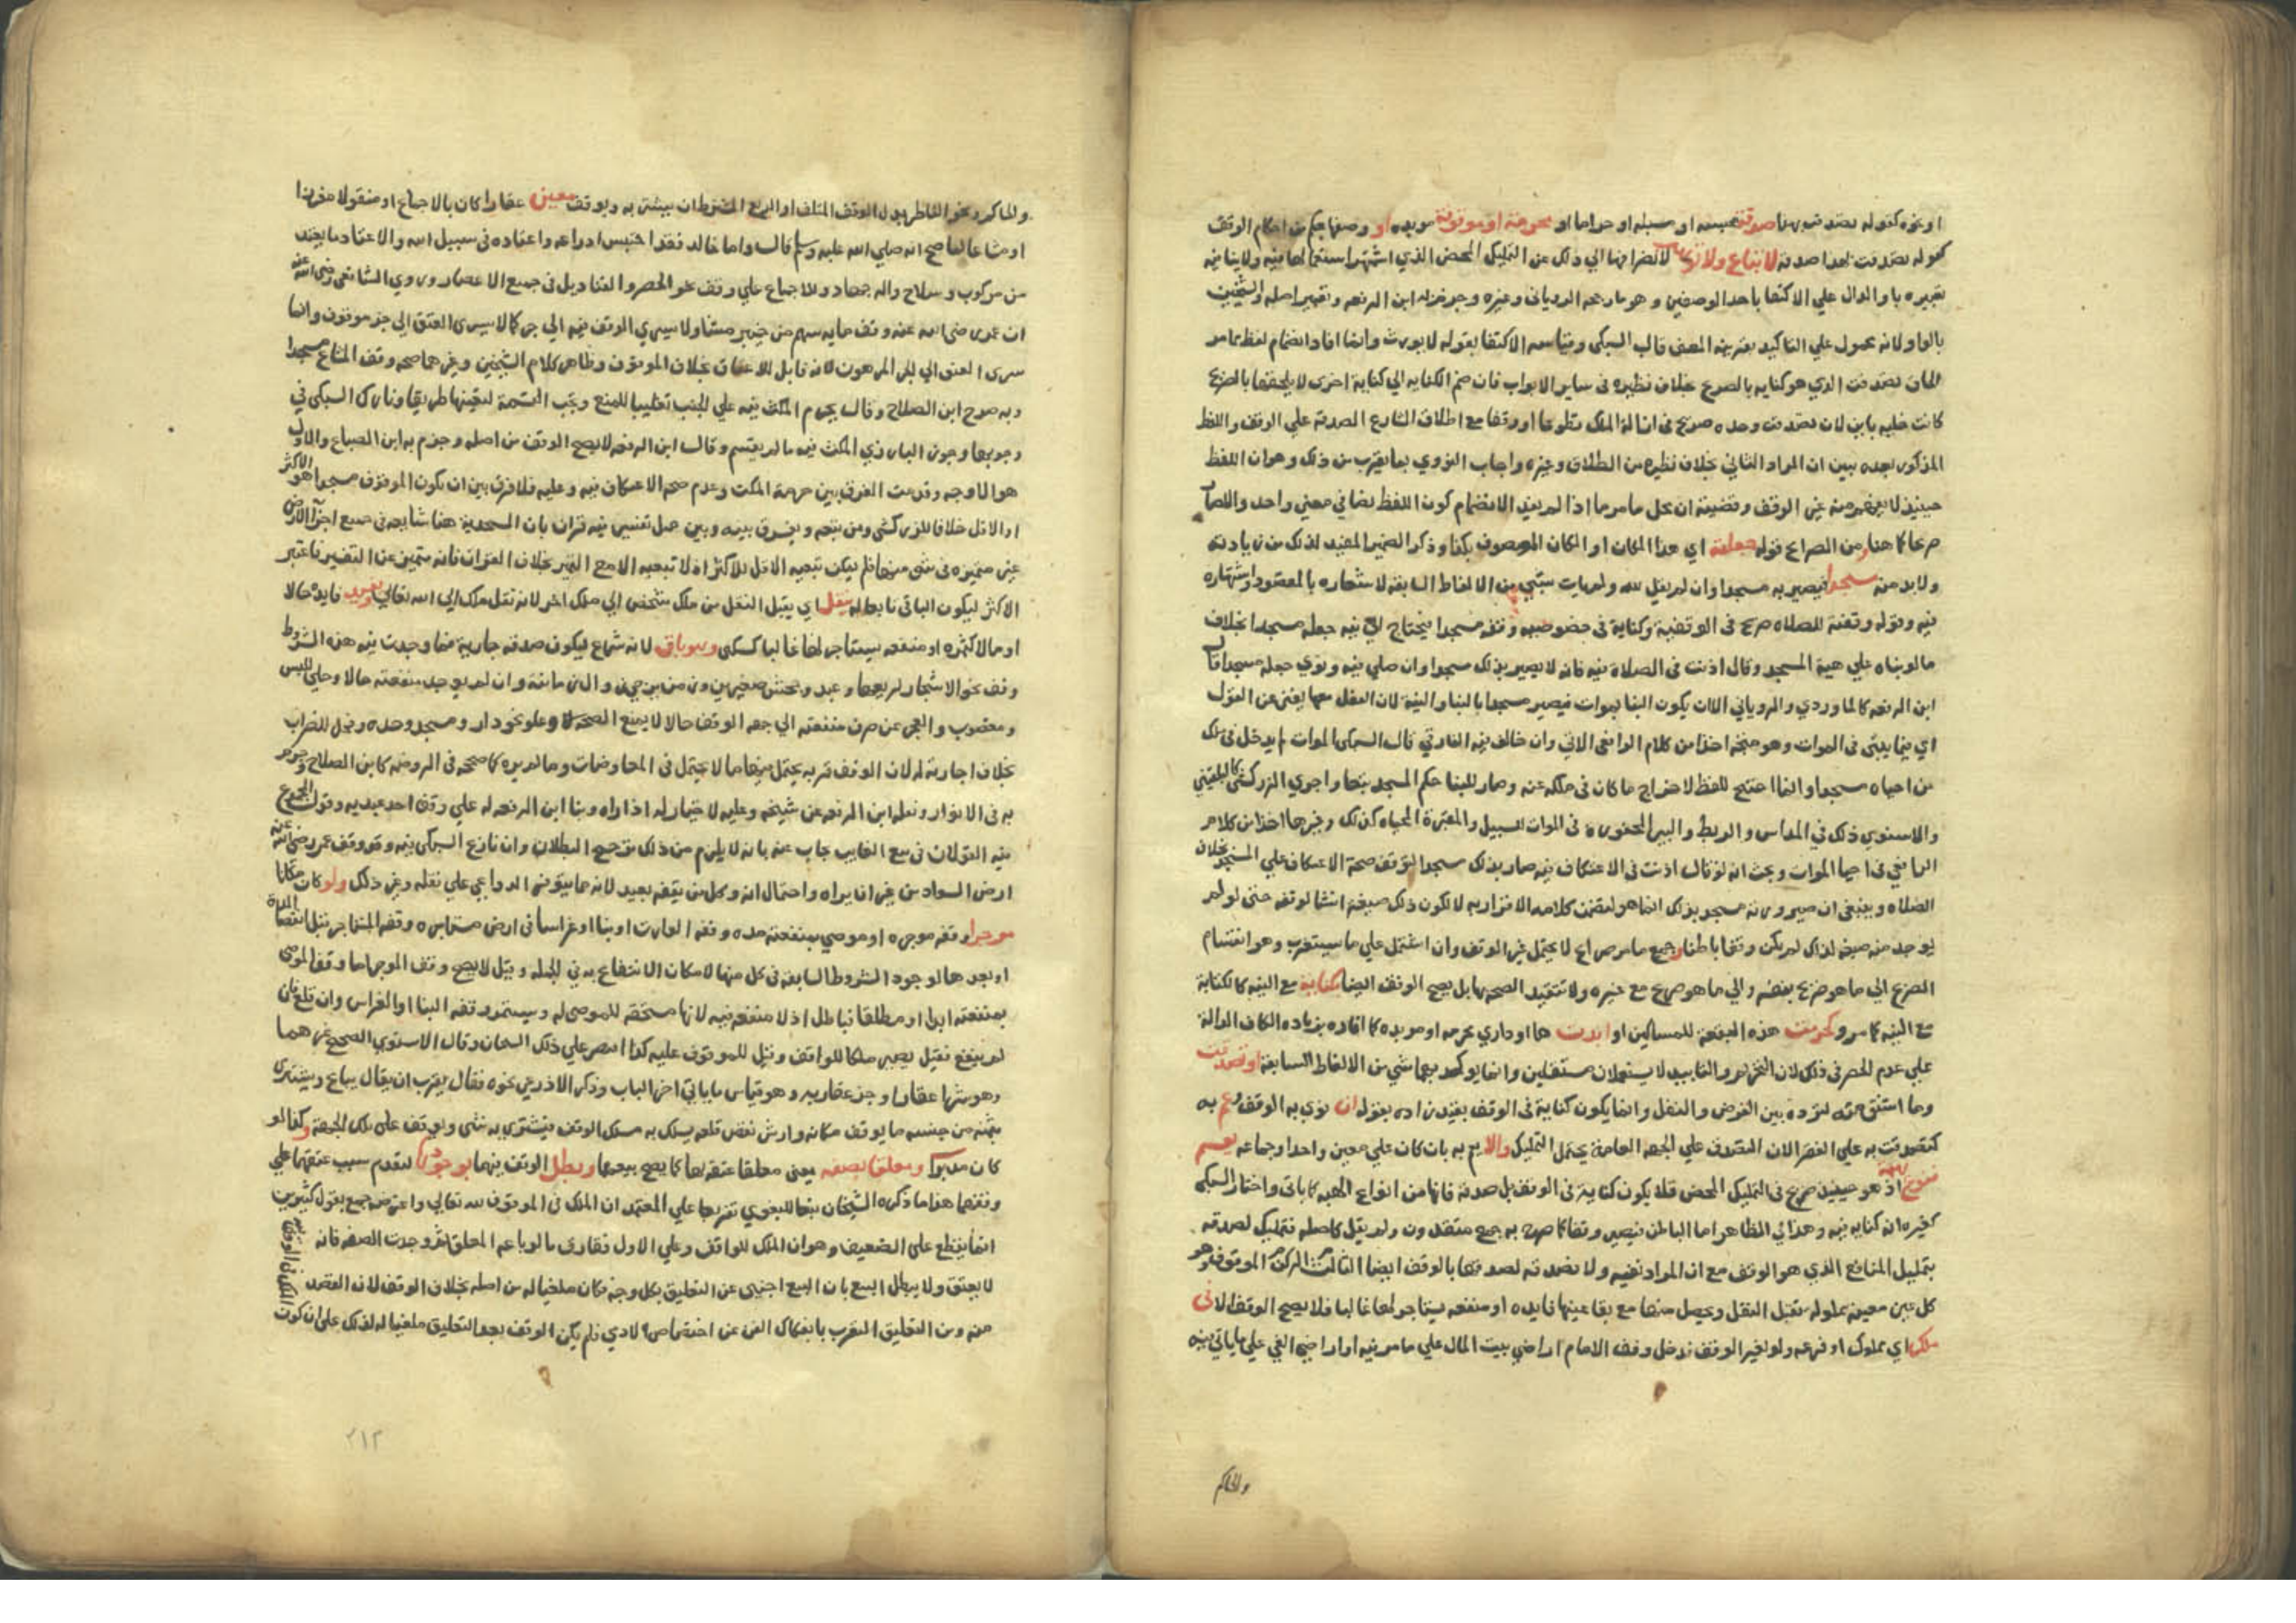 او نحوه كقوله تصدقت بهذا صدقة محبسه او مسبله او حراما او محرمة او موقوفة موبده او وصفها بحكم من احكام الوقف
كقوله تصدقت بهذا صدقة لا تباع ولا توهب لانصرافها الي ذلك عن التمليك المحض الذي اشتهر استعمالها فيه ولا ينافيه
تعبيره باو الدال علي الاكتفا باحد الوصفين وهو ما رجحه الروياني وغيره وجزم به ابن الرفعه وتعبير اصله والشيخين
بالواو لانه محمول علي التاكيد قال السبكي وقياسه الاكتفا بقوله لا يورث وانما افاد انضمام لفظ مما مر
الي تصدقت الذي هو كنايه بالصريح بخلاف نظيره في ساير الابواب فان ضم الكنايه الي كناية اخري لا يلحقها بالصريح
كانت خليه باين لان تصدقت وحده صريح في ازالة الملك تطوعا او وقفا مع اطلاق الشارع الصدقة علي الوقف واللفظ
المذكور بعده يبين ان المراد الثاني بخلاف نظيره من الطلاق وغيره واجاب النووي بما يقرب من ذلك وهو ان اللفظ
حينيذ لا يفهم منه غير الوقف وقضيته ان محل ما مر ما اذا لم يفد الانضمام كون اللفظ نصا في معني واحد والا صار
صريحا كما هنا ومن الصرايح قوله جعلته اي هذا المكان او المكان الموصوف بكذا وذكر الضمير المفيد لذلك من زيادته
ولا بد منه مسجدا فيصير به مسجدا وان لم يقل لله ولم يات بشي من الالفاظ السابقه لاشعاره بالمقصود واشتهاره
فيه وقوله وقفته للصلاه صريح في الوقفية وكناية في خصوص وقفه مسجدا فيحتاج الي نيه جعله مسجدا بخلاف
ما لو بناه علي هيه المسجد وقال اذنت في الصلاة فيه فانه لا يصير بذلك مسجدا وان صلي فيه ونوي جعله مسجدا قال
ابن الرفعه كالماوردي والروياني الا ان يكون البنا بموات فيصير مسجدا بالبنا والنية لان الفعل معها يغني عن القول
اي فيما يبني في الموات وهو متجه اخذا من كلام الرافعي الاتي وان خالف فيه الفارقي قال السبكي الموات لم يدخل في ملك
من احياه مسجدا وانما احتيج للفظ لاخراج ما كان في ملكه عنه وصار للبنا حكم المسجد تبعا واجري الزركشي كالبلقيني
والاسنوي ذلك في المدارس والربط والبير المحفورة في الموات للسبيل والمقبرة المحياه كذلك وغيرها اخذا من كلام
الرافعي في احيا الموات وبحث انه لو قال اذنت في الاعتكاف فيه صار بذلك مسجدا لتوقف صحة الاعتكاف علي المسجد بخلاف
الصلاه وينبغي ان صيرورته مسجدا بذلك انما هو لتضمن كلامه الاقرار به لا لكون ذلك صيغة انشا لوقفه حتي لو لم
يوجد منه صيغه لذلك لم يكن وقفا باطنا وجميع ما مر صرايح لا يحتمل غير الوقف وان اشتمل علي ما سيتقرر وهو انقسام
الصريح الي ما هو صريح بنفسه والي ما هو صريح مع غيره ولا تتقيد الصحه بها بل يصح الوقف ايضا بكناية مع النيه كالكتابة
مع النيه كما مر وكحرمت هذه البقعة للمساكين او ابدت ها او داري محرمه او موبده كما افاده بزياده الكاف الدالة
علي عدم الحصر في ذلك لان التحريم والتابيد لا يستعملان مستقلين وانما يوكد بهما شي من الالفاظ السابقه او تصدقت
وما اشتق منه لتردده بين الفرض والنفل وانما يكون كناية في الوقف بقيد زاده بقوله ان نوي به الوقف وعم به
كتصدقت به علي الفقرا لان التصدق علي الجهه العامه يحتمل التمليك والا يعم به بان كان علي معين واحد او جماعه يعم
فنوع اذ هو حينيذ صريح في التمليك المحض فلا يكون كناية في الوقف بل صدقة فانها من انواع الهبه كما ياتي واختار السبكي
كغيره انه كنايه فيه وهذا في الظاهر اما الباطن فيصير وقفا كما صرح به جمع متقدمون ولم يقل كاصله فتمليك لصدقه
بتمليك المنافع الذي هو الوقف مع ان المراد نفيه ولا بصدقه لصدقها بالوقف ايضا الثالث الركن الموقوف وهو
كل عين معينه مملوكه تقبل النقل ويحصل منها مع بقا عينها فايده او منفعه يستاجر لها غالبا فلا يصح الوقف الا في
ملك اي مملوك او فرعه ولو لغير الوقف ندخل وقف الامام اراضي بيت المال علي ما مر فيه او اراضي الفي علي ما ياتي فيه
والحاكم
والحاكم ونحو الناظر بدل الوقف المتلف او الريع المشروط ان يشتري به ويوقف معين عقارا كان بالاجماع او منقولا مفرزا
او مشاعا لما صح انه صلي الله عليه وسلم قال واما خالد فقد احتبس ادراعه واعتاده في سبيل الله والاعتاد ما يعد
من مركوب وسلاح واله جهاد وللاجماع علي وقف نحو الحصر والقناديل في جميع الاعصار وروي الشافعي رضي الله عنه
ان عمر رضي الله عنه وقف مايه سهم من خيبر مشاعا ولا يسري الوقف فيه الي جزء كما لا يسري العتق الي جزء موقوف وانما
سري العتق الي الجزء المرهون لانه قابل للاعتاق بخلاف الموقوف وظاهر كلام الشيخين وغيرهما صحه وقف المشاع مسجدا
وبه صرح ابن الصلاح وقال يحرم المكث فيه علي الجنب تغليبا للمنع وتجب القسمة لتعينها طريقا ونازعه السبكي في
وجوبها وجوز البارزي المكث فيه ما لم يقسم وقال ابن الرفعه لا يصح الوقف من اصله وجزم به ابن الصباغ والاول
هو الاوجه وقدمت الفرق بين حرمة المكث وعدم صحه الاعتكاف فيه وعليه فلا فرق بين ان يكون الموقوف مسجدا هو الاكثر
او الاقل خلافا للزركشي ومن تبعه ويفرق بينه وبين حمل تفسير فيه قران بان المسجدية هنا شايعه في جميع اجزا الارض
غير متميزه في شي منها فلم يمكن تبعيه الاقل للاكثر اذ لا تبعيه الا مع التميز بخلاف القران فانه متميز عن التفسير فاعتبر
الاكثر ليكون الباقي تابعا له ينقل اي يقبل النقل من ملك شخص الي ملك اخر لانه نقل ملك الي الله تعالي يفيد فايده حالا
او مالا كثمره او منفعه يستاجر لها غالبا كسكني وهو باق لانه شرع ليكون صدقه جارية فما وجدت فيه هذه الشروط
وقف نحو الاشجار لريعها وعبد وجحش صغيرين وزمن يرجي زوال زمانته وان لم يوجد منفعته حالا وحلي للبس
ومغصوب والعجز عن صرف منفعته الي جهه الوقف حالا لا يمنع الصحه وعلو نحو دار ومسجد وحده وفحل للضراب
بخلاف اجارته له لان الوقف قربه يحتمل فيها ما لا يحتمل في المعاوضات وما لم يره كما صححه في الروضه كابن الصلاح وجزم
به في الانوار ونقله ابن الرفعه عن شيخه وعليه لا خيار له اذا راه وبنا ابن الرفعه له علي وقف احد عبديه وقول المجموع
فيه القولان في بيع الغايب يجاب عنه بانه لا يلزم من ذلك ترجيح البطلان وان نازع السبكي فيه وقد وقف عمر رضي الله عنه
ارض السواد من غير ان يراه واحتمال انه وكل من يقفه بعيد لانه مما يتوفر الدواعي علي نقله وغير ذلك ولو كان مكانا
موجرا وقفه موجره او موصي بمنفعته مده وقفه الوارث او بنا او غراسا في ارض مستاجره وقفه المستاجر قبل انقضا المدة
او بعدها لوجود الشروط السابقه في كل منها لامكان الانتفاع به في الجمله وقيل لا يصح وقف الموجر اما وقف الموصي
بمنفعته ابدا او مطلقا فباطل اذ لا منفعه فيه لانها مستحقه للموصي له ويستمر وقفه البنا او الغراس وان قلع فان
لم ينفع فقيل يصير ملكا للواقف وقيل للموقوف عليه كذا اقتصر علي ذلك الشيخان وقال الاسنوي الصحيح غيرهما
وهو شرا عقار او جزء عقار به وهو قياس ما ياتي اخر الباب وذكر الاذرعي نحوه فقال يقرب ان يقال يباع ويشتري
بثمنه من جنسه ما يوقف مكانه وارش نقص قلعه يسلك به مسلك الوقف فيشتري به شي ويوقف علي تلك الجهة وكذا لو
كان مدبرا ومعلقا بصفه يعني معلقا عتقه بها كما يصح بيعهما ويبطل الوقف فيهما بوجودها لتقدم سبب عتقهما علي
وقفهما هذا ما ذكره الشيخان تبعا للبغوي تفريعا علي المعتمد ان الملك في الموقوف لله تعالي واعترضه جمع بقول كثيرين
انما ينقطع علي الضعيف وهو ان الملك للواقف وعلي الاول فقارق ما لو باعه المعلق ثم وجدت الصفه فانه
لا يعتق ولا يبطل البيع بان البيع اجنبي عن التعليق بكل وجه فكان ملغيا له من اصله بخلاف الوقف لان القصد
منه ومن التعليق التقرب بانفكاك القن عن اختصاص الادمي فلم يكن الوقف بعد التعليق ملغيا له لذلك علي ان كون
٢١٢